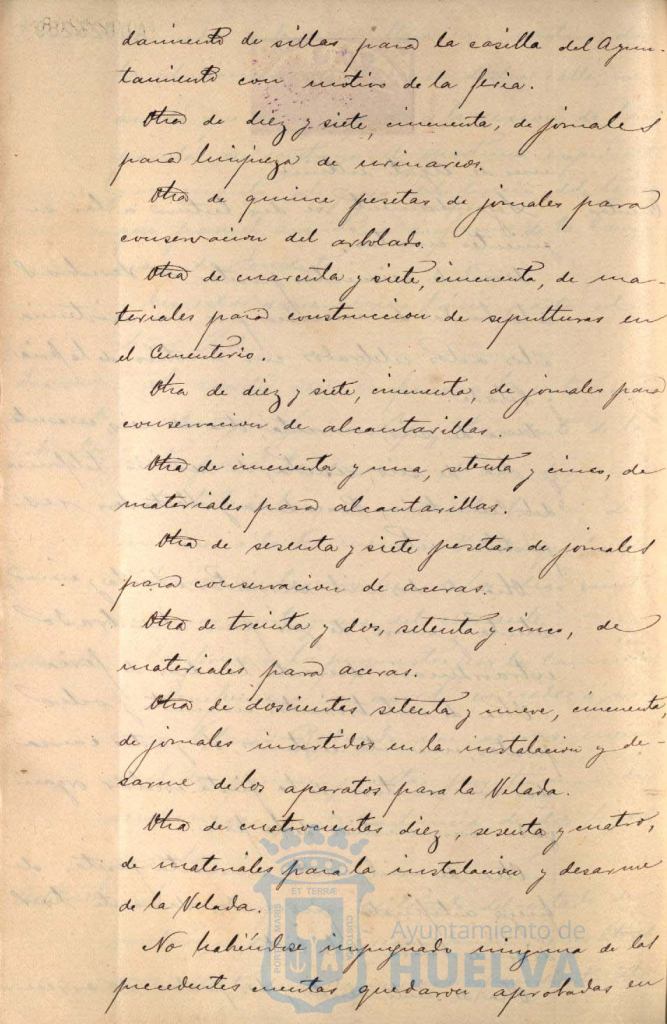 damiento de sillas para la casilla del Ayun-
tamiento con motivo de la feria.
Otra de diez y siete, cincuenta, de jornales
para limpieza de urinarios.
Otra de quince pesetas de jornales para
conservacion del arbolado.
Otra de cuarenta y siete, cincuenta, de ma-
teriales para construccion de sepulturas en
el Cementerio.
Otra de diez y siete, cincuenta, de jornales para
conservacion de alcantarillas.
Otra de cincuenta y una, setenta y cinco, de
materiales para alcantarillas.
Otra de sesenta y siete pesetas de jornales
para conservacion de aceras.
Otra de treinta y dos, setenta y cinco, de
materiales para aceras.
Otra de doscientas setenta y nueve, cincuenta,
de jornales invertidos en la instalacion y de-
sarme de los aparatos para la Velada.
Otra de cuatrocientas diez, sesenta y cuatro,
de materiales para la instalacion y desarme
de la Velada.
No habiéndose impugnado ninguna de las
precedentes cuentas quedaron aprobadas en
PORTUS MARIS ET TERRÆ CUSTODIA
Ayuntamiento de
HUELVA